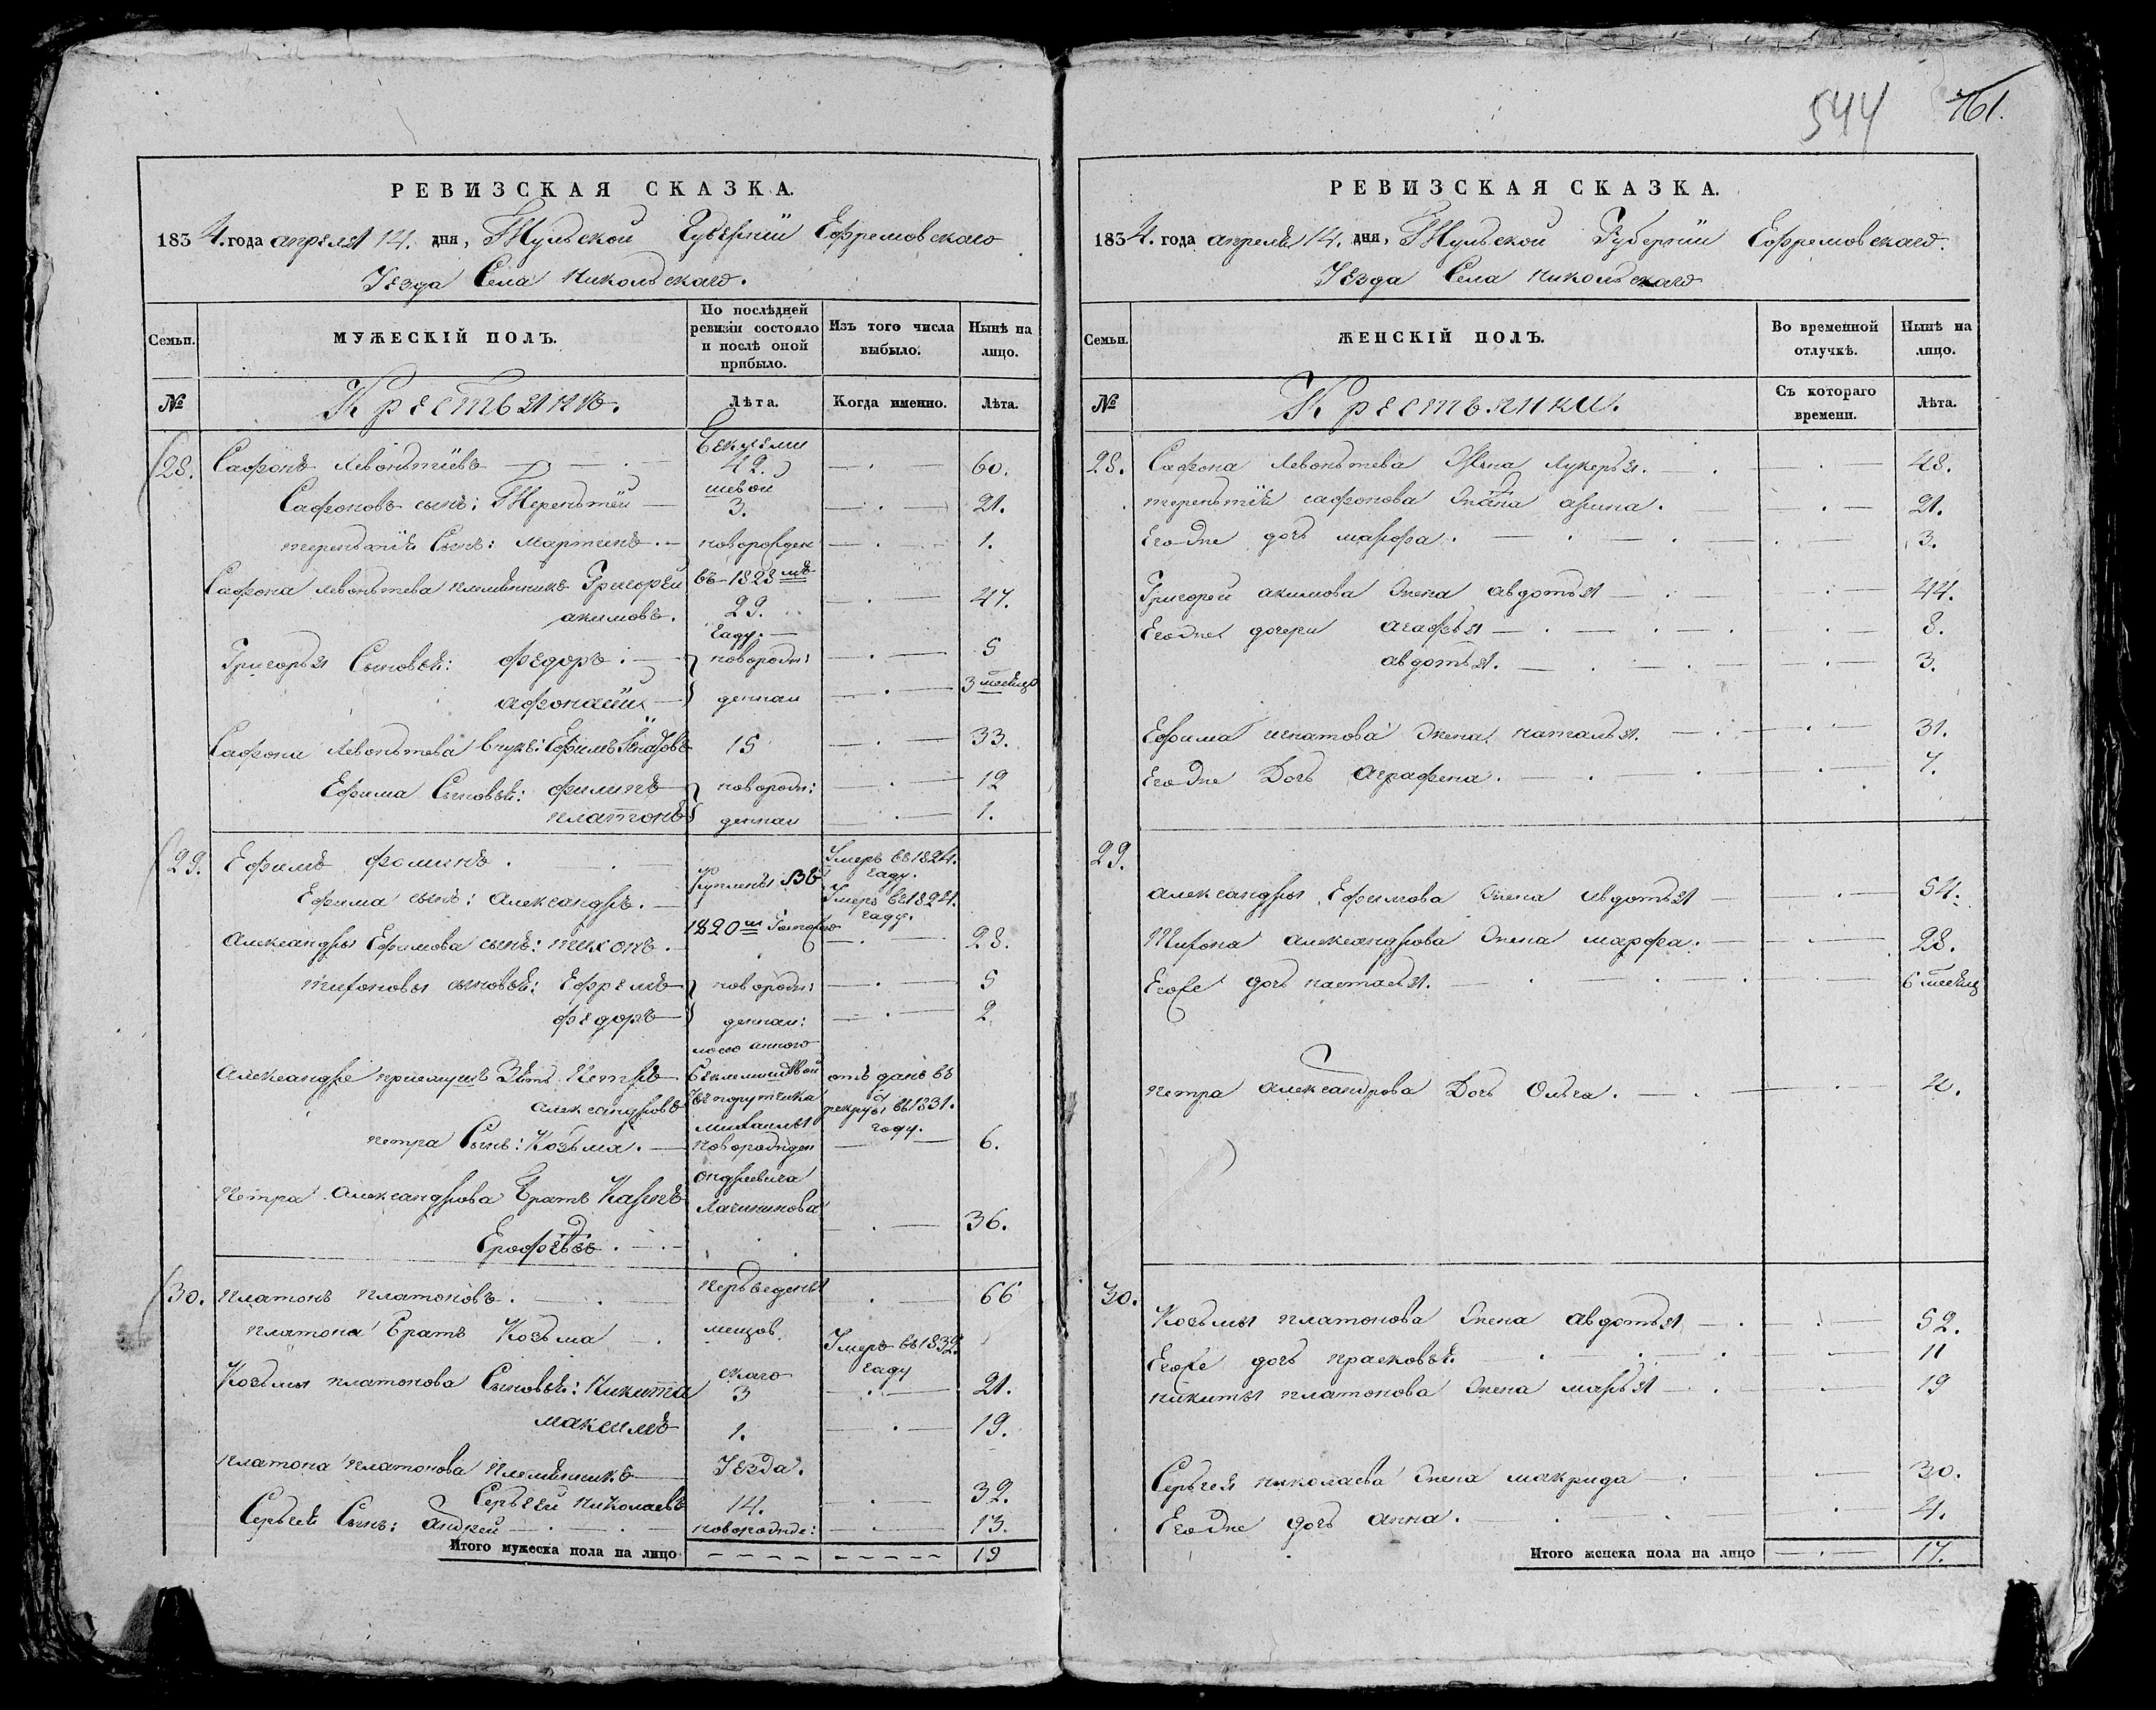 544 761.
РЕВИЗСКАЯ СКАЗКА.
1834. года апреля 14. дня, Тульской Губернии Ефремовскаго
Уезда Села Никольскаго.
Семьи.
МУЖЕСКІЙ ПОЛЪ.
По послѣдней ревизіи состояло и послѣ оной прибыло.
Изъ того числа выбыло.
Нынѣ на лицо.
№
Крестьяне.
Лѣта.
Когда именно.
Лѣта.
28. Сафонъ Левонътиевъ 49. 60.
Сафоновъ сынъ: Терентей 3. 21.
терентия Сынъ: мартинъ. новорожден 1.
Сафона левонтева племянникъ Григорей въ 1823 мъ 47.
акимовъ. 29.
гаду.
Григорья Сыновей: федоръ. новорож: 5
афонасий денныи 3 месяца
Сафона Левонтева внукъ: Ефимъ 15 33.
Ефима Сыновей: филипъ новорож: 12
платонъ денныи 1.
29. Ефимъ фоминъ. Умеръ въ 1824. гаду.
Ефима сынъ: Александръ. куплены Умеръ въ 1824. гаду.
Александры Ефимова сынъ: тихонъ. 1820 28.
тихоновы сыновей: Ефремъ новорож: 5
федоръ денныи: 2
Александре приемушъ Зять Петръ отъ данъ въ
Александровъ порутчика рекруты въ 1831. гаду.
петра Сынъ: Козьма. новорожден 6.
Петра Александрова Братъ Карпъ андреевича
Ерофеевъ. 36.
30. платонъ платоновъ. переведены 66
платона Братъ Козьма Умеръ въ 1832. гаду
Козьмы платонова Сыновей: Никита скаго 3 21.
максимъ 1. 19.
платона платонова племянникъ Уезда.
Сергей Николаевъ 14. 32.
Сергей Сынъ: Андрей новорожде: 13.
Итого мужеска пола на лицо 19
РЕВИЗСКАЯ СКАЗКА.
1834. года апреля 14. дня, Тульской Губернии Ефремовскаго.
Уезда Села Никольскаго
Семьи.
ЖЕНСКІЙ ПОЛЪ.
Во временной отлучкѣ.
Нынѣ на лицо.
№
Крестьянки.
Съ котораго времени.
Лѣта.
28. Сафона Левонтева Жена Лукерья. 48.
терентий сафонова Жена арина. 21.
Его же дочь марфа. 3.
Григорей акимова Жена авдотья 44.
Его же дочери агафья 8.
авдотья. 3.
Ефима игнатова Жена наталья. 31.
Его же Дочь Аграфена. 7.
29.
александры Ефимова Жена авдотья 54.
Тихона александрова Жена марфа. 28.
Его же дочь настасья. 6 месяц
петра александрова Дочь Ольга.
30.
Козьмы платонова Жена авдотья 52.
Его же дочь прасковья. 11
никиты платонова Жена марья 19
Сергея николаева Жена макрида 30.
Его же дочь анна. 4.
Итого женска пола на лицо 17.